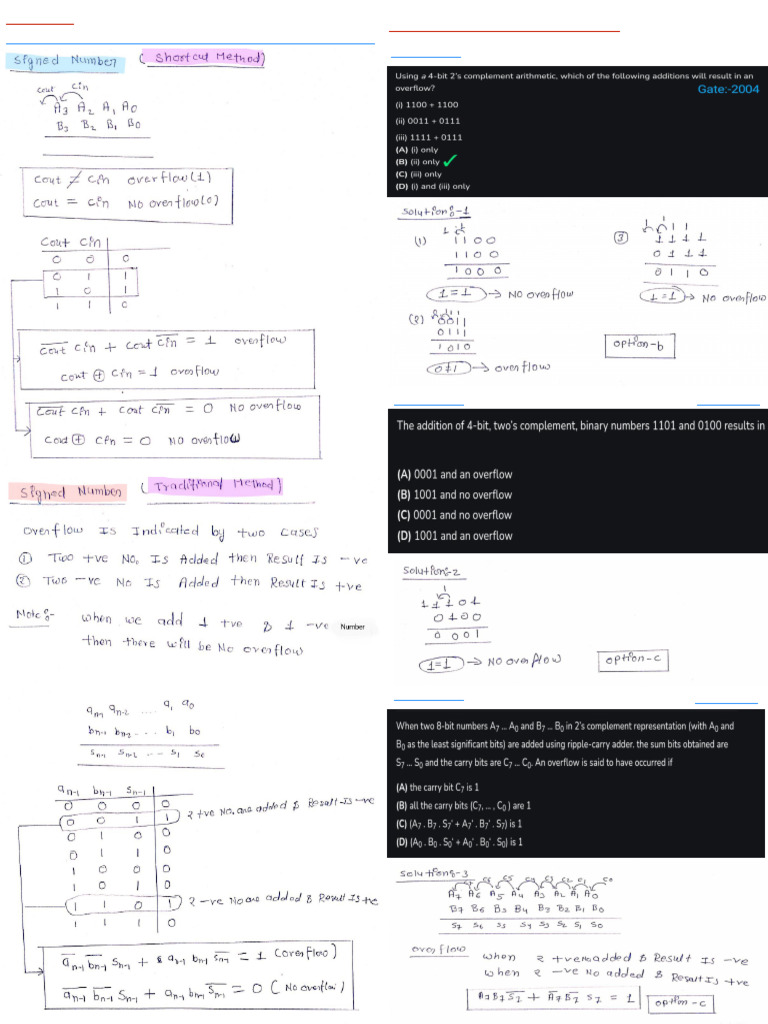 Signed Number ( Shortcut Method)
cout cin
A3 A2 A1 A0
B3 B2 B1 B0
cout ≠ cin overflow(1)
cout = cin No overflow(0)
Cout Cin
0 0 0
0 1 1
1 0 1
1 1 0
c̅o̅u̅t̅ cin + cout c̅i̅n̅ = 1 overflow
cout ⊕ cin = 1 overflow
c̅o̅u̅t̅ cin + cout c̅i̅n̅ = 0 No overflow
cout ⊕ cin = 0 No overflow
Signed Number ( Traditional Method)
overflow Is Indicated by two cases
① Two +ve No. Is Added then Result Is -ve
② Two -ve No Is Added then Result Is +ve
Note:- when we add 1 +ve & 1 -ve Number
then there will be No overflow
an-1 an-2 ..... a1 a0
bn-1 bn-2 ... b1 b0
sn-1 sn-2 -- s1 s0
an-1 bn-1 sn-1
0 0 0 0
0 0 1 1 2 +ve No. are added & Result Is -ve
0 1 0 0
0 1 1 0
1 0 0 0
1 0 1 0
1 1 0 1 2 -ve No are added & Result Is +ve
1 1 1 0
a̅n-1 b̅n-1 sn-1 + an-1 bn-1 s̅n-1 = 1 (overflow)
a̅n-1 b̅n-1 sn-1 + an-1 bn-1 s̅n-1 = 0 ( No overflow)
Using a 4-bit 2's complement arithmetic, which of the following additions will result in an
overflow?
Gate:-2004
(i) 1100 + 1100
(ii) 0011 + 0111
(iii) 1111 + 0111
(A) (i) only
(B) (ii) only ✓
(C) (iii) only
(D) (i) and (iii) only
Solution:-1
(1) 1 1 0 0
1 1 0 0
1 0 0 0
1=1 → No overflow
③ 1 1 1 1
0 1 1 1
0 1 1 0
1=1 → No overflow
(2) 0011
0111
1010
0≠1 → overflow
option-b
The addition of 4-bit, two's complement, binary numbers 1101 and 0100 results in
(A) 0001 and an overflow
(B) 1001 and no overflow
(C) 0001 and no overflow
(D) 1001 and an overflow
Solution:-2
1
1 1 1 0 1
0 1 0 0
0 0 0 1
1=1 → No overflow
option-c
When two 8-bit numbers A7 ... A0 and B7 ... B0 in 2's complement representation (with A0 and
B0 as the least significant bits) are added using ripple-carry adder. the sum bits obtained are
S7 ... S0 and the carry bits are C7 ... C0. An overflow is said to have occurred if
(A) the carry bit C7 is 1
(B) all the carry bits (C7, ... , C0) are 1
(C) (A7 . B7 . S7' + A7' . B7' . S7) is 1
(D) (A0 . B0 . S0' + A0' . B0' . S0) is 1
Solution:-3
C7 C6 C5 C4 C3 C2 C1 C0
A7 A6 A5 A4 A3 A2 A1 A0
B7 B6 B5 B4 B3 B2 B1 B0
S7 S6 S5 S4 S3 S2 S1 S0
overflow when 2 +ve no added & Result Is -ve
when 2 -ve No added & Result Is +ve
A7 B7 S̅7 + A̅7 B̅7 S7 = 1
option-c